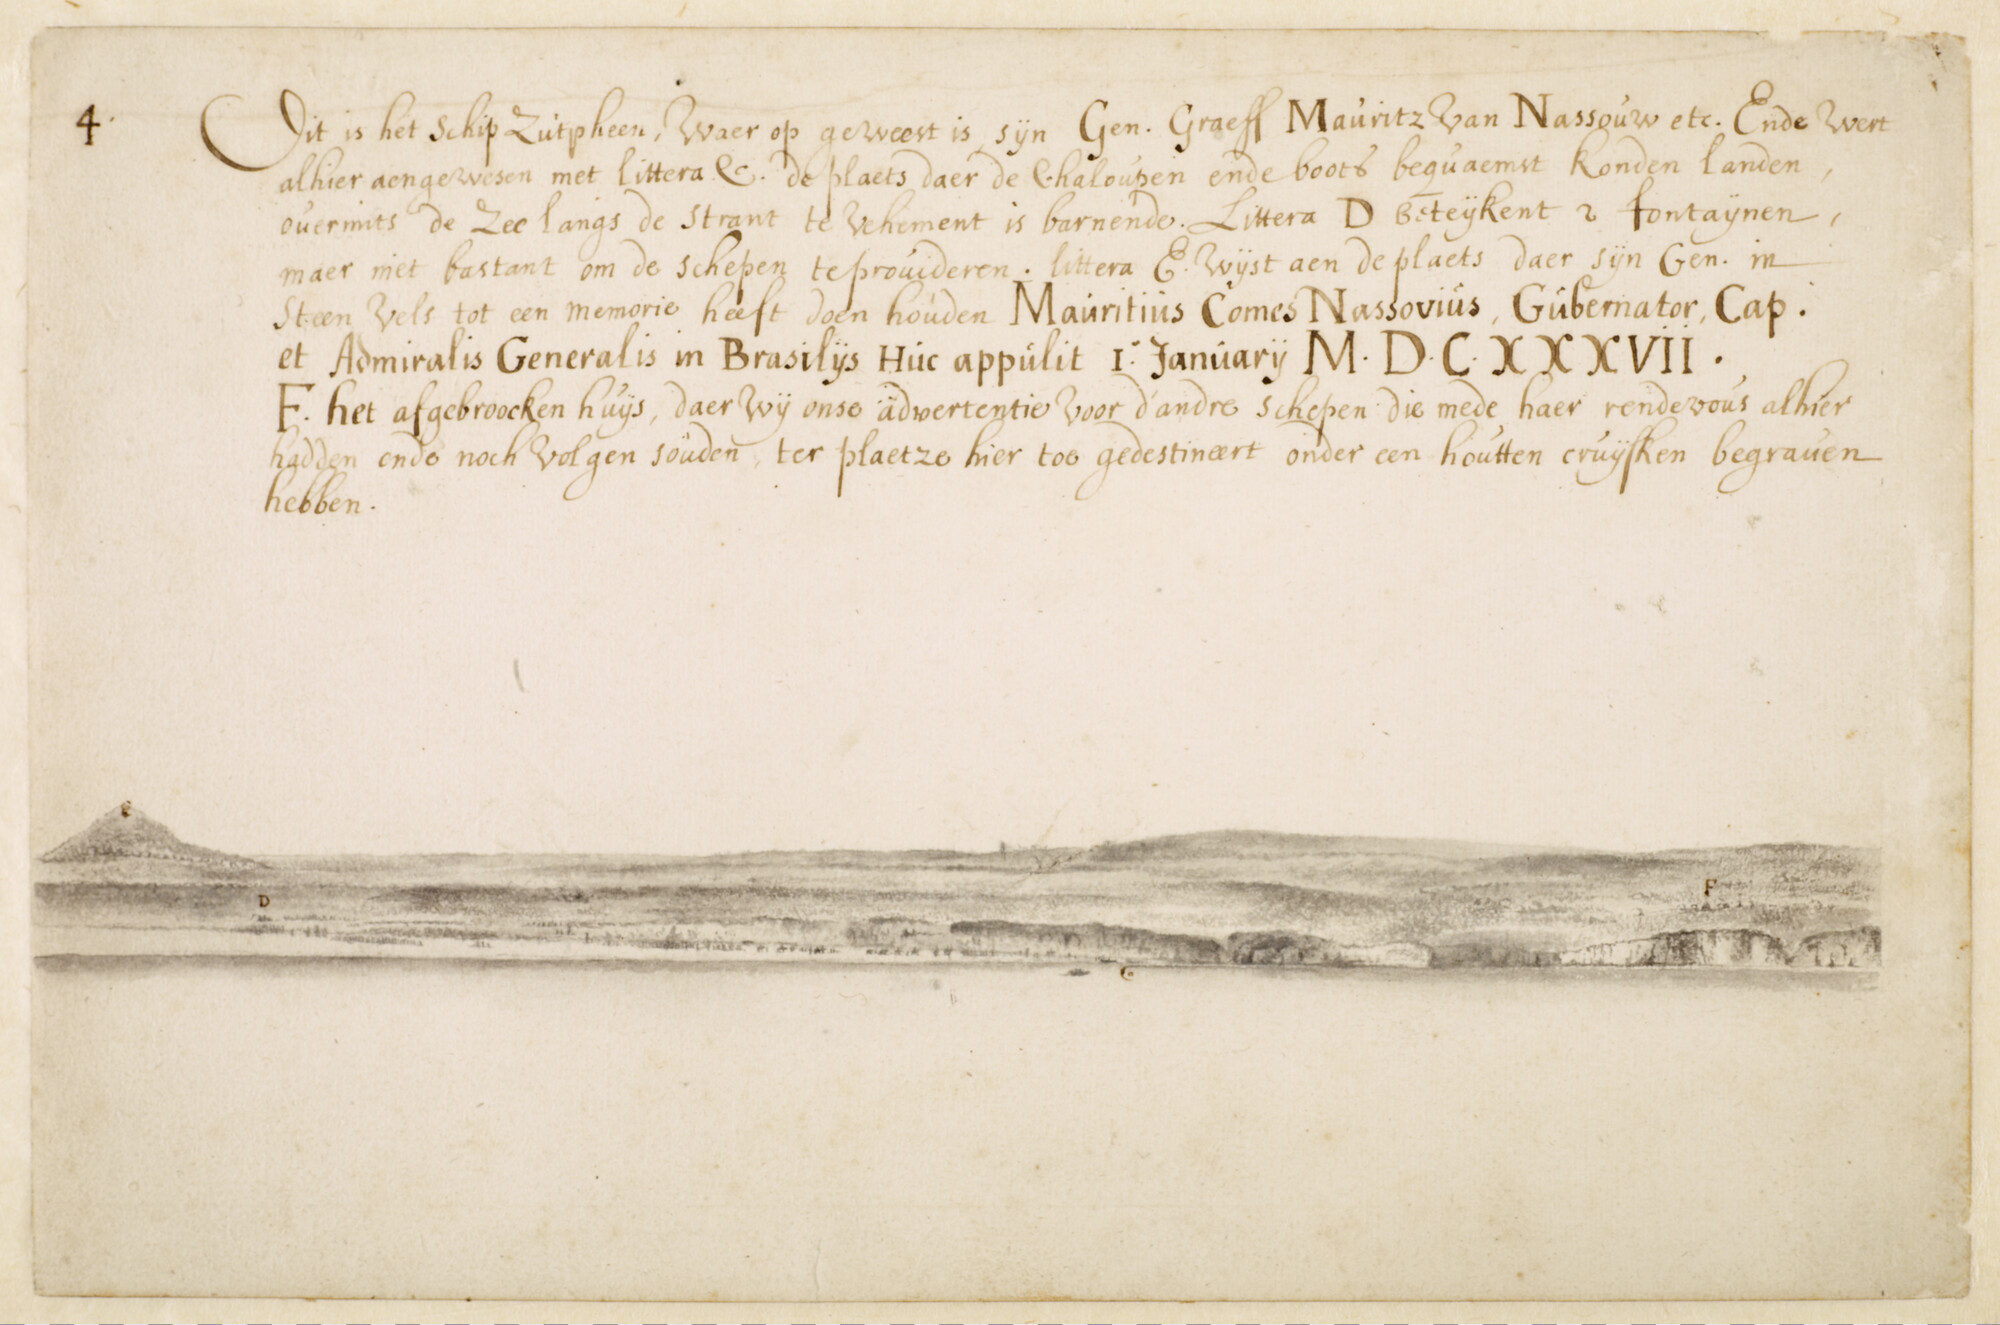 4.
Dit is het Schip Zutpheen, Waer op geweest is sÿn Gen. Graeff Mauritz Van Nassouw etc. Ende Wert
alhier aengewesen met littera C. de plaets daer de Chaloupen ende boots bequaemst konden landen,
overmits de Zee langs de Strant te Vehement is barnende. Littera D Beteÿkent 2 fontaÿnen,
maer niet bastant om de schepen te provideren. littera E. Wÿst aen de plaets daer sÿn Gen. in
Steen Vels tot een memorie heeft doen houden Mauritius Comes Nassovius, Gubernator, Cap.
et Admiralis Generalis in Brasilÿs Huc appulit 1.° Januarÿ M.D.C.XXXVII.
F. het afgebroocken huÿs, daer Wÿ onse advertentie Voor d'andre Schepen die mede haer rendevous alhier
hadden ende noch Volgen souden, ter plaetze hier toe gedestineert onder een houtten cruÿsken begraven
hebben.
E
D
F
C